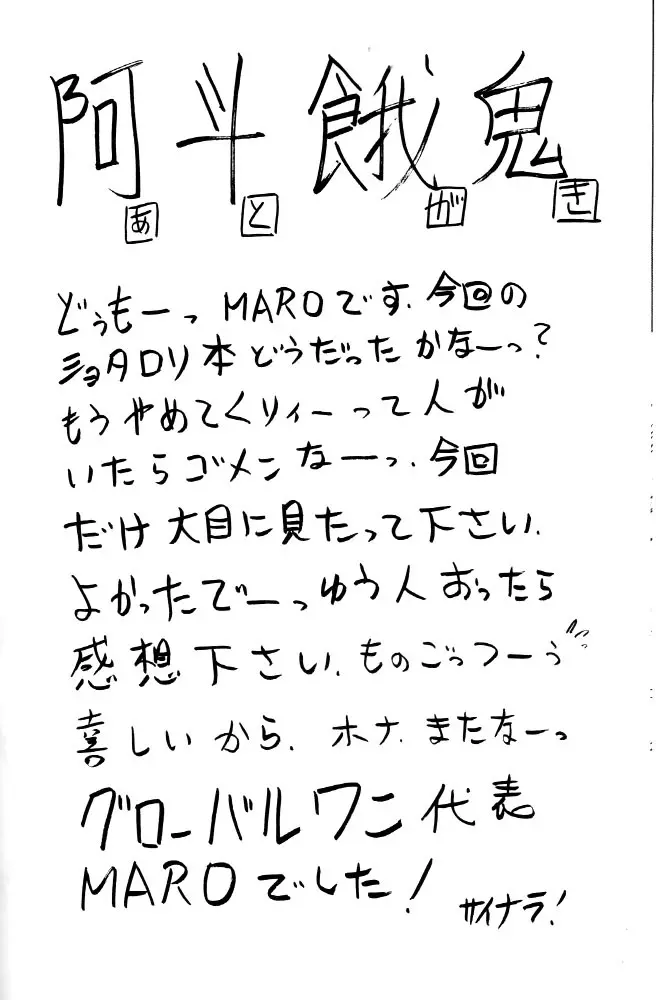 阿斗餓鬼
あ と が き
どぅもーっ MAROです.今回の
ショタロリ本どうだったかなーっ?
もうやめてくりィーって人が
いたらゴメンなーっ.今回
だけ大目に見たって下さい.
よかったでーっゆう人おったら
感想下さい.ものごっつーぅ
喜しいから.ホナ.またなーっ
グローバルワン代表
MAROでした!
サイナラ!